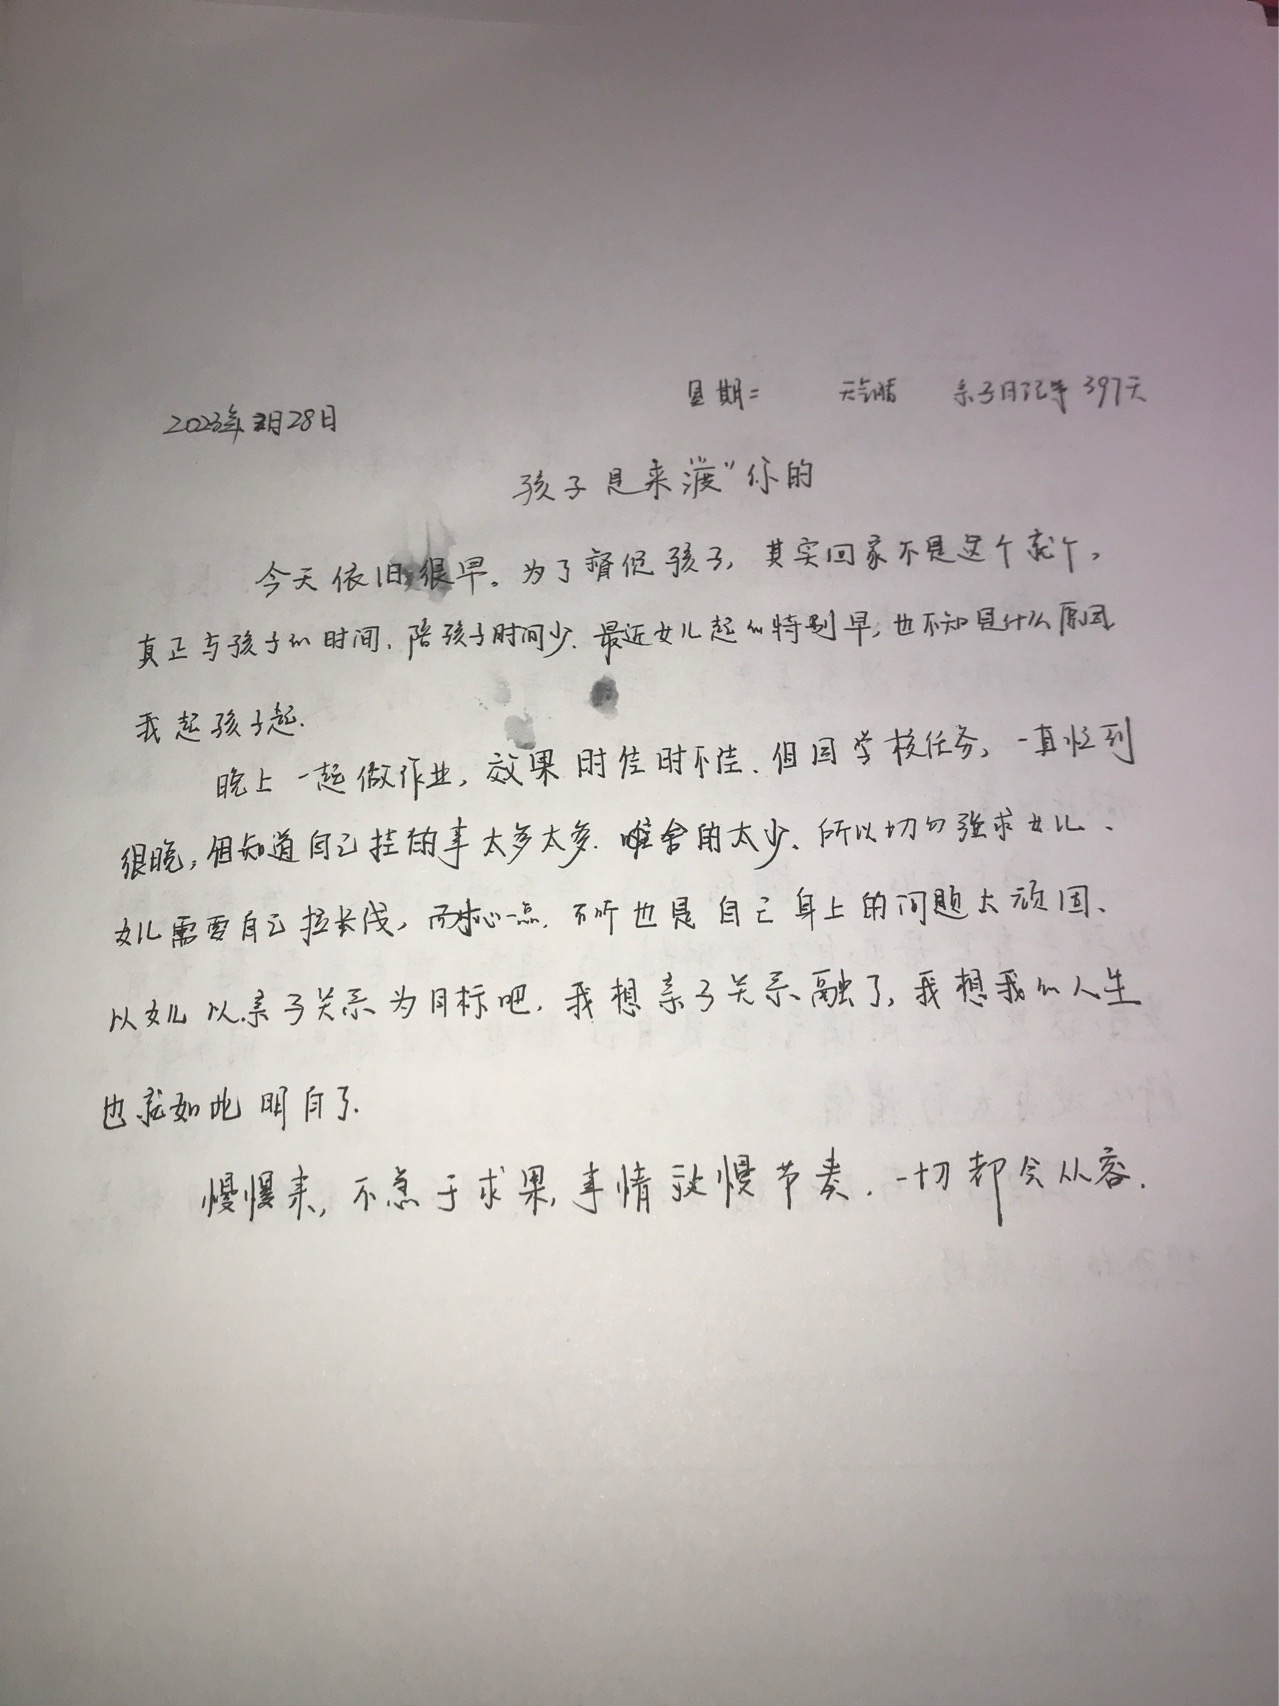 星期二 天气晴 亲子日记第397天
2023年2月28日
孩子是来“渡”你的
今天依旧很早。为了督促孩子,其实回家不是这个就个,
真正与孩子的时间,陪孩子时间少.最近女儿起的特别早,也不知是什么原因
我起孩子起.
晚上一起做作业,效果时佳时不佳、但因学校任务,一直忙到
很晚,但知道自己挂的事太多太多.唯舍的太少、所以切勿强求女儿、
女儿需要自己拉长线,耐心一点.不听也是自己身上的问题太顽固、
以女儿以亲子关系为目标吧.我想亲子关系融了,我想我的人生
也就如此明白了.
慢慢来,不急于求果,事情放慢节奏.一切都会从容.